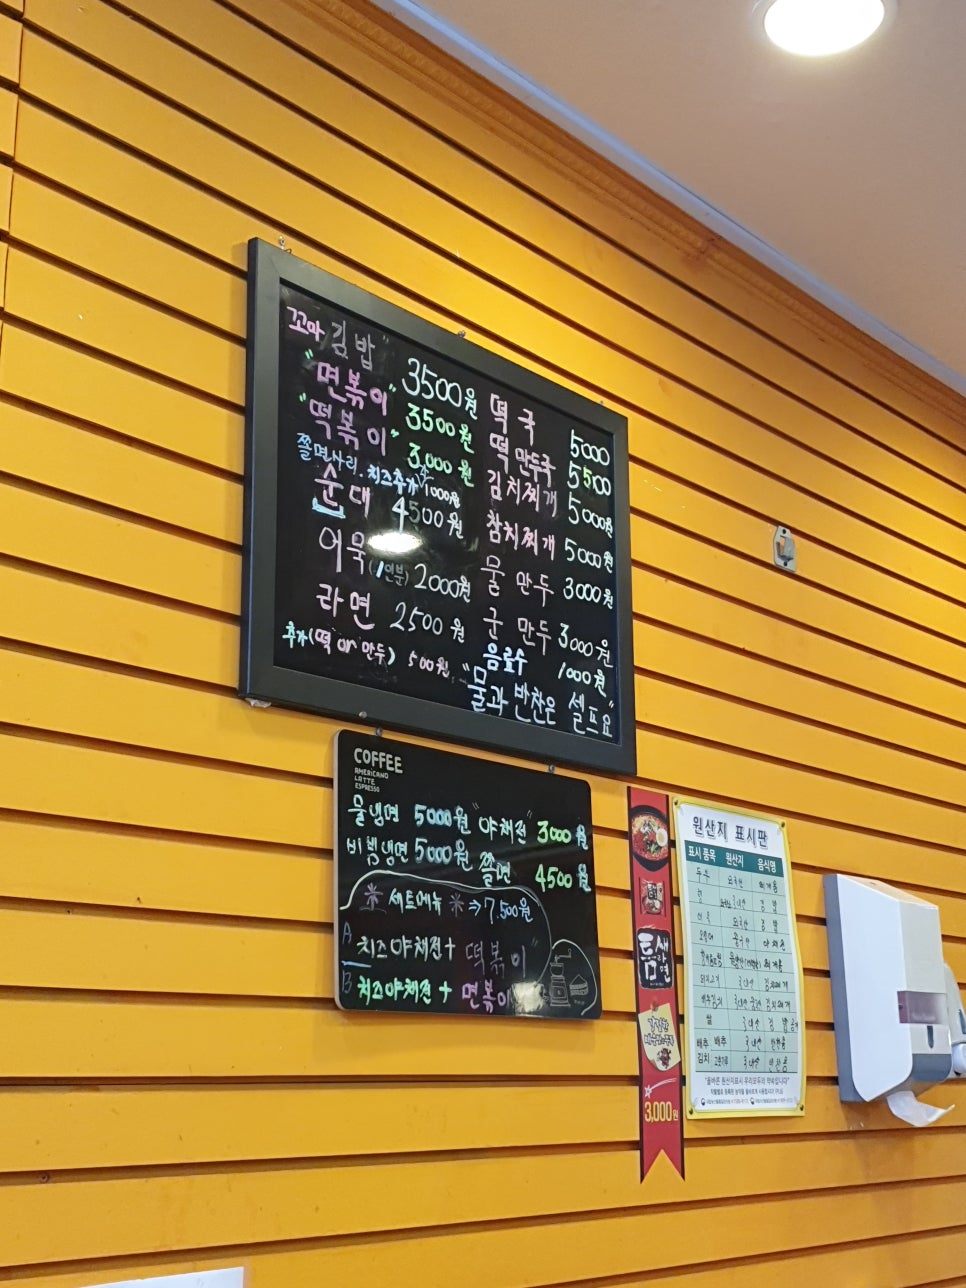 꼬마김밥" 3500원
"면볶이" 3500원
"떡볶이" 3,000원
쫄면사리. 치즈추가 1000원
순대 4500원
어묵(1인분) 2000원
라면 2500원
추가(떡 or 만두) 500원.
떡국 5000
떡만두국 5500
김치찌개 5000원
참치찌개 5000원
물만두 3000원
군만두 3000원
음료수 1000원
"물과 반찬은 셀프요"
COFFEE
AMERICANO
LATTE
ESPRESSO
물냉면 5000원 "야채전" 3000원
비빔냉면 5000원 쫄면 4500원
세트메뉴 ⇒ 7,500원
A 치즈야채전 + 떡볶이
B 치즈야채전 + 면볶이
틈새
라면
3,000원
원산지 표시판
표시 품목 원산지 음식명
쌀 국내산 김밥
"올바른 원산지표시 우리모두의 약속입니다"